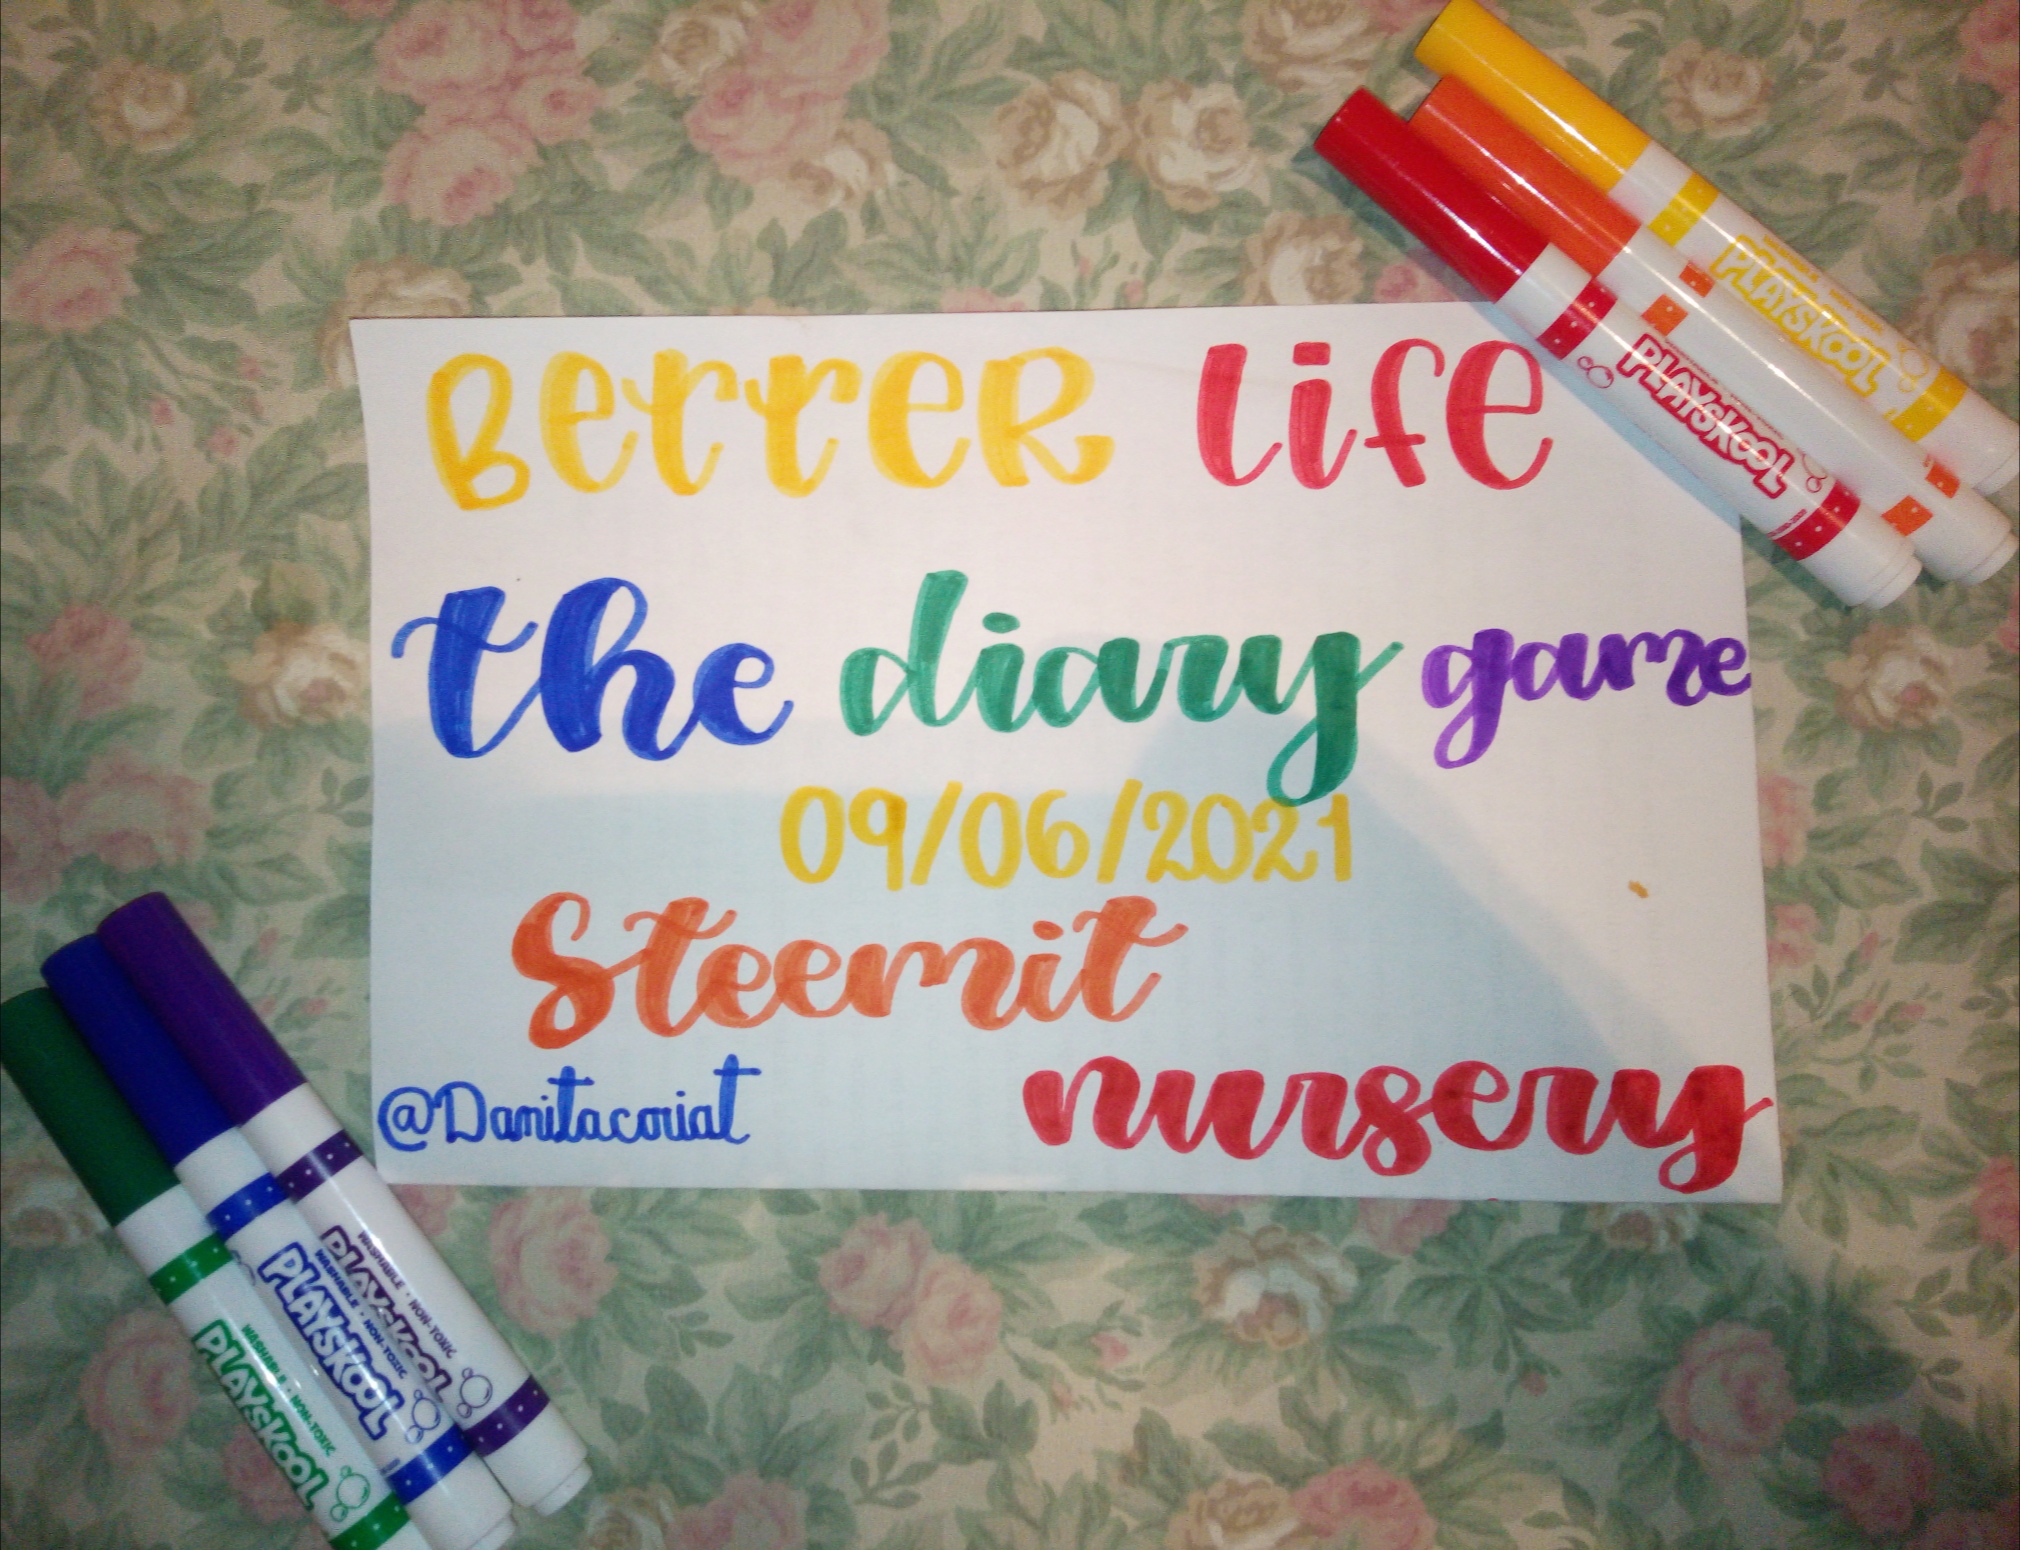 Better life
the diary game
09/06/2021
Steemit
@Danitacoriat
nursery
PLAYSKOOL
PLAYSKOOL
WASHABLE · NON-TOXIC
PLAYSKOOL
WASHABLE · NON-TOXIC
PLAYSKOOL
WASHABLE · NON-TOXIC
PLAYSKOOL